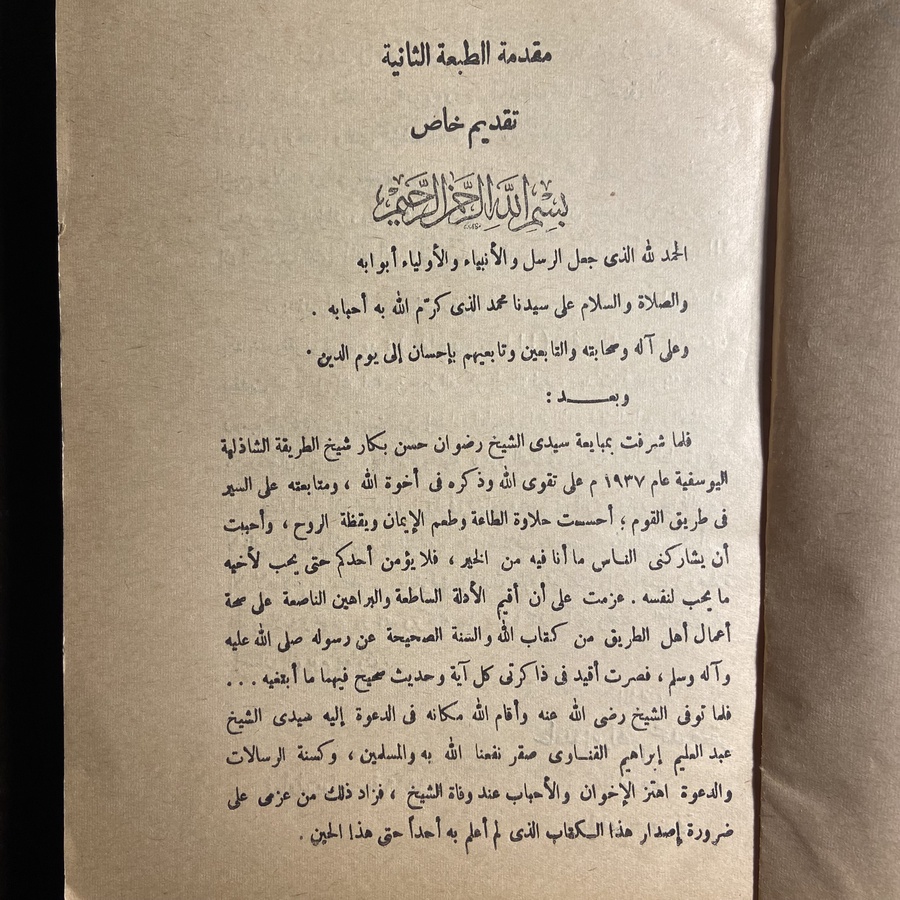 مقدمة الطبعة الثانية
تقديم خاص
بِسْمِ اللَّهِ الرَّحْمَٰنِ الرَّحِيمِ
الحمد لله الذى جعل الرسل والأنبياء والأولياء أبوابه
والصلاة والسلام على سيدنا محمد الذى كرّم الله به أحبابه .
وعلى آله وصحابته والتابعين وتابعيهم بإحسان إلى يوم الدين .
وبعـــــد :
فلما شرفت بمبايعة سيدى الشيخ رضوان حسن بكار شيخ الطريقة الشاذلية
اليوسفية عام ١٩٣٧ م على تقوى الله وذكره فى أخوة الله ، ومتابعته على السير
فى طريق القوم ؛ أحسست حلاوة الطاعة وطعم الإيمان ويقظة الروح ، وأحببت
أن يشاركنى النـاس ما أنا فيه من الخير ، فلا يؤمن أحدكم حتى يحب لأخيه
ما يحب لنفسه . عزمت على أن أقيم الأدلة الساطعة والبراهين الناصعة على صحة
أعمال أهل الطريق من كتاب الله والسنة الصحيحة عن رسوله صلى الله عليه
وآله وسلم ، فصرت أقيد فى ذاكرتى كل آية وحديث صحيح فيهما ما أبتغيه . . .
فلما توفى الشيخ رضى الله عنه وأقام الله مكانه فى الدعوة إليه سيدى الشيخ
عبد العليم إبراهيم القنـاوى صقر نفعنا الله به والمسلمين ، وكسنة الرسالات
والدعوة اهتز الإخوان والأحباب عند وفاة الشيخ ، فزاد ذلك من عزمى على
ضرورة إصدار هذا الـكتاب الذى لم أعلم به أحداً حتى هذا الحين .